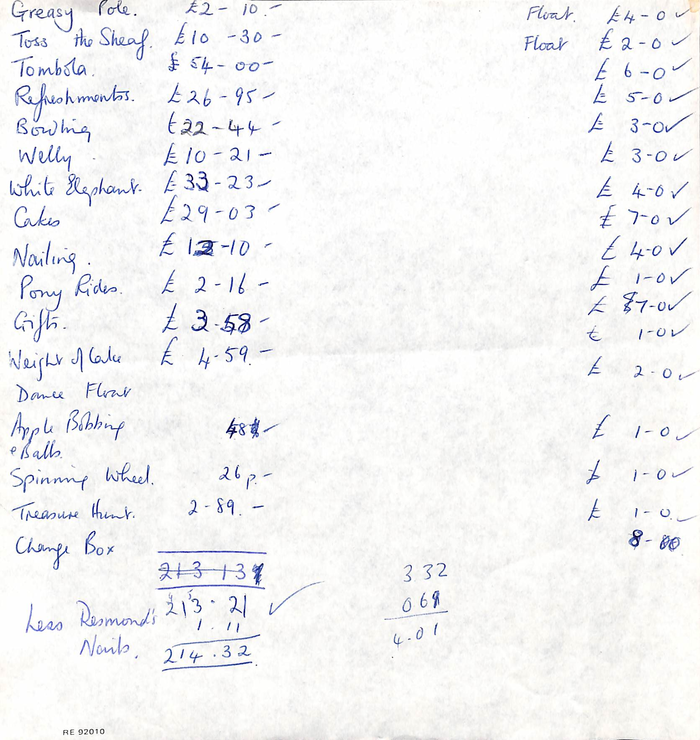 Greasy Pole. £2-10.- Float. £4-0 ✓
Toss the Sheaf. £10-30- Float £2-0 ✓
Tombola. £54-00- £6-0 ✓
Refreshments. £26-95- £5-0 ✓
Bowling £22-44- £3-0 ✓
Welly. £10-21- £3-0 ✓
White Elephant. £33-23- £4-0 ✓
Cakes £29-03- £7-0 ✓
Nailing. £13-10- £4-0 ✓
Pony Rides. £2-16- £1-0 ✓
Gifts. £3.58- £7-0 ✓
£1-0 ✓
Weight of Cake £4-59.- £2-0 ✓
Dance Float
Apple Bobbing £1-0 ✓
+ Balls.
Spinning Wheel. 26p.- £1-0 ✓
Treasure Hunt. 2-89.- £1-0.
Change Box 8-
213 13
Less Resmond's 213.21 ✓
1.11
Nails. 214.32
332
069
4.01
RE 92010